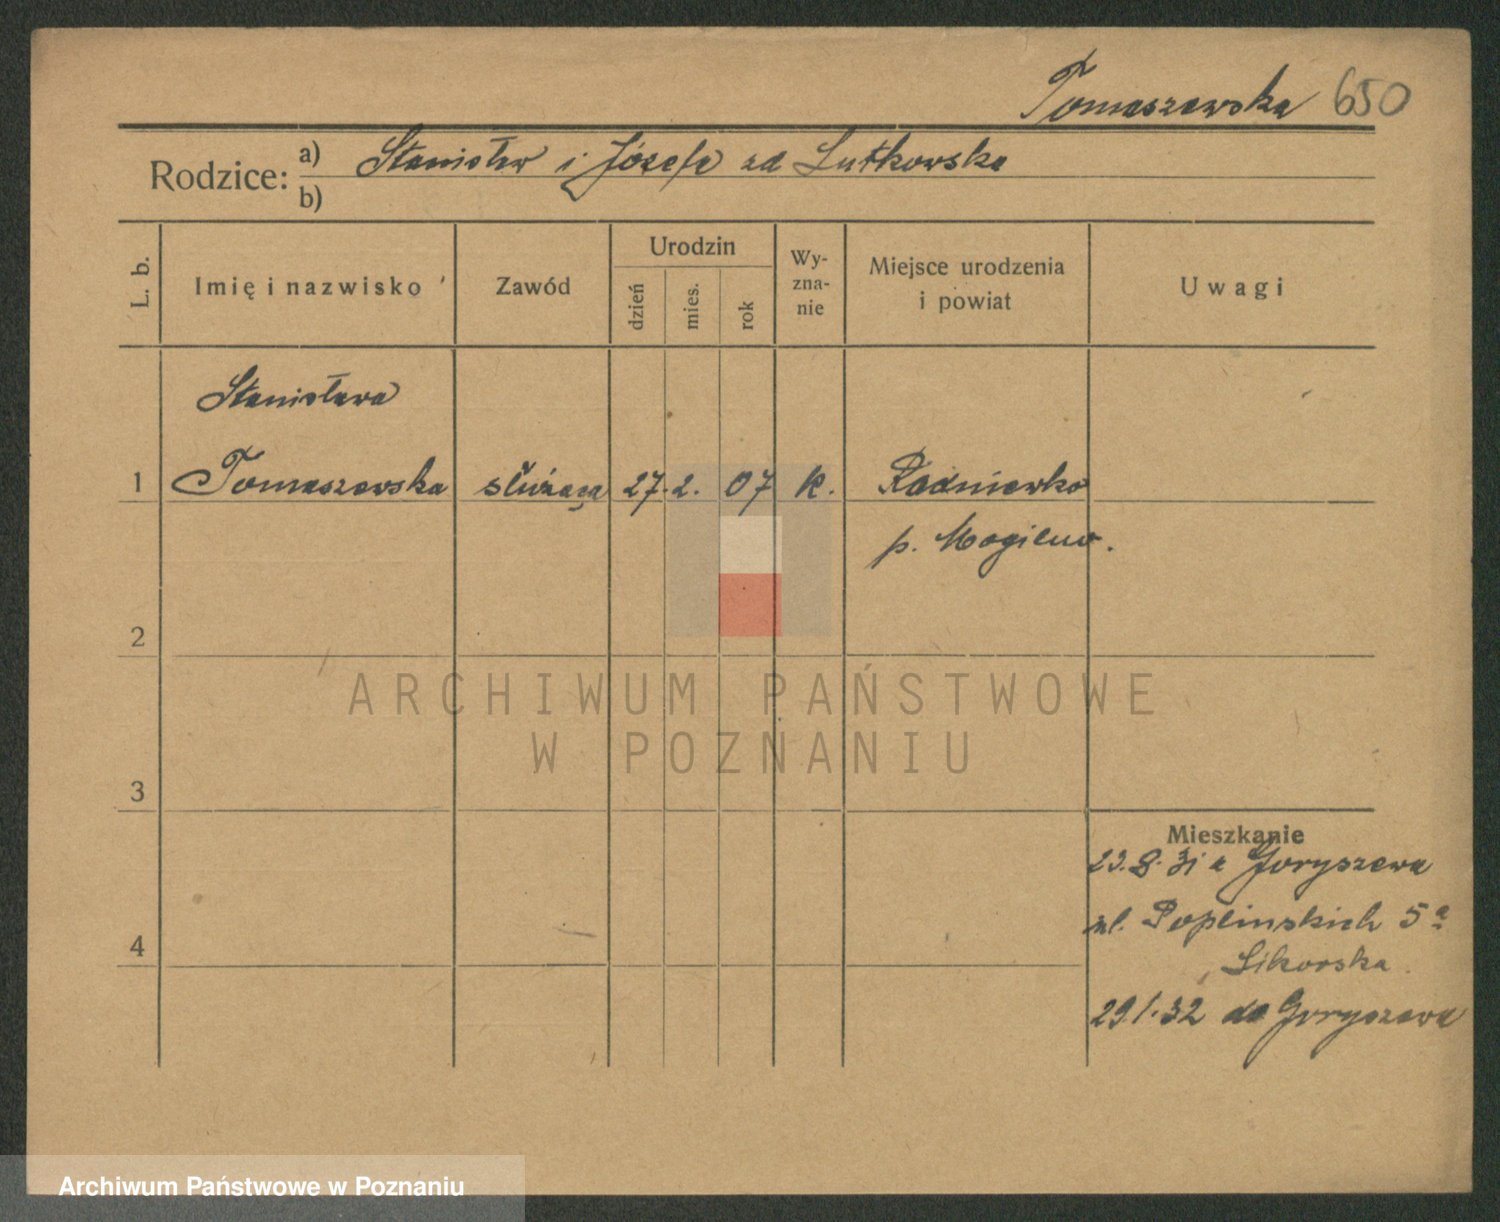 Tomaszewska 650
Rodzice: a) Stanisław i Józefa zd Lutkowska
b)
L. b.
Imię i nazwisko
Zawód
Urodzin
dzień
mies.
rok
Wy-
zna-
nie
Miejsce urodzenia
i powiat
Uwagi
Stanisława
1 Tomaszewska służąca 27. 2. 07 k.
p. Mogilno.
2
ARCHIWUM PAŃSTWOWE
W POZNANIU
3
Mieszkanie
23.8.31 z Goryszewa
4 ul. Poplinskich 5a
Sikorska
29.1.32 do Goryszewa
Archiwum Państwowe w Poznaniu